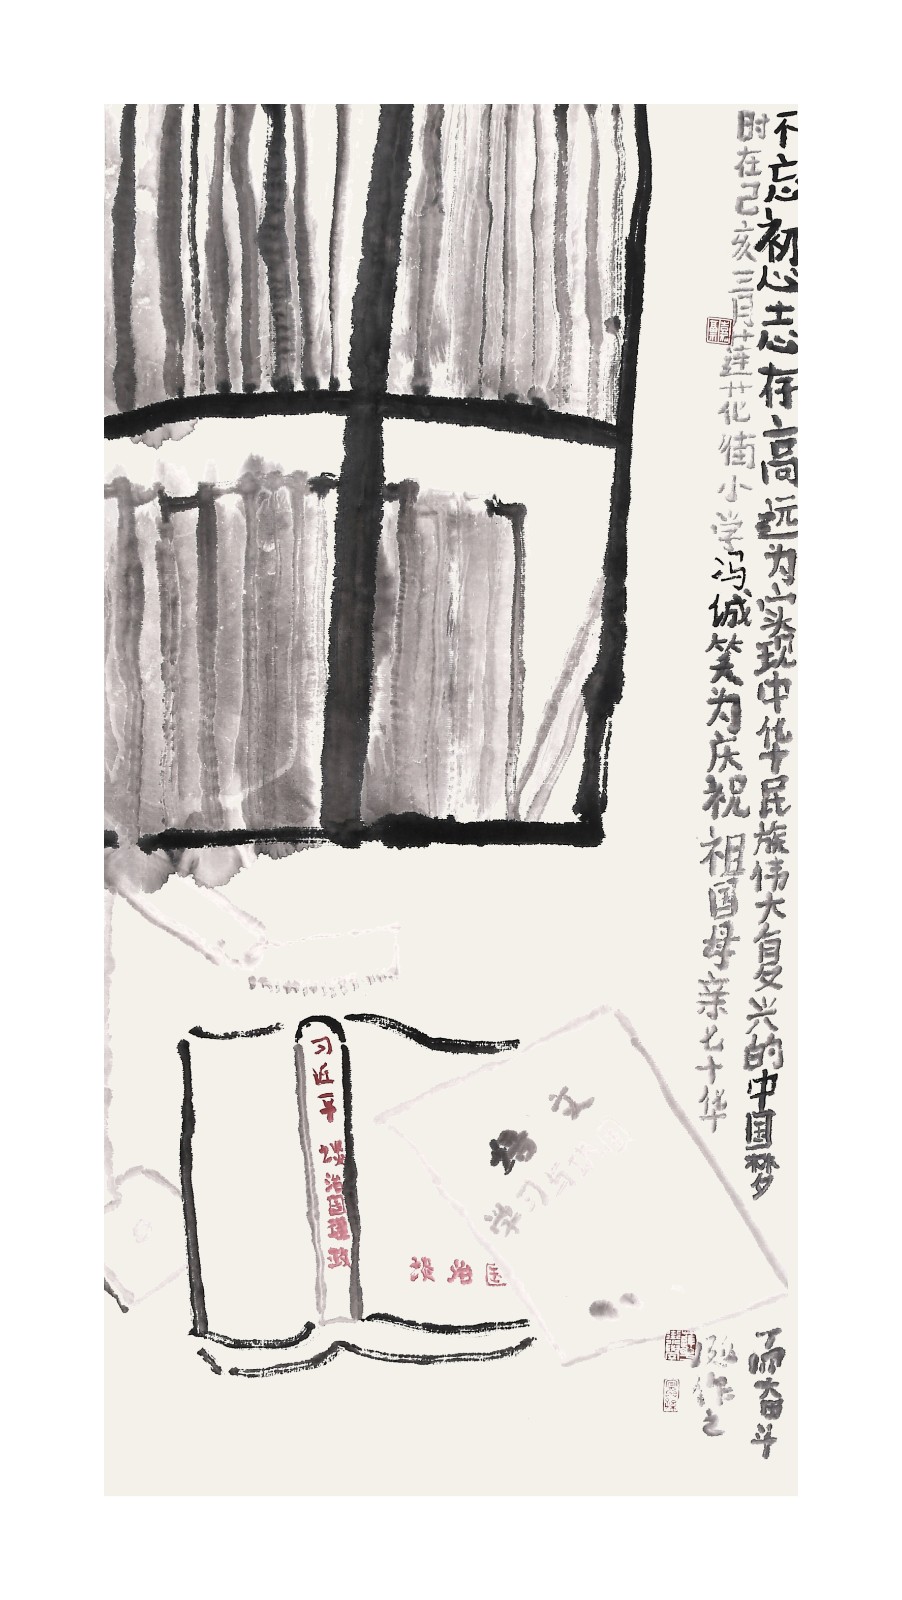 不忘初心志存高远为实现中华民族伟大复兴的中国梦
而奋斗
时在己亥三月廿莲花街小学冯诚笑为庆祝祖国母亲七十华
诞作之
习近平 谈治国理政
谈治国
语文
学习